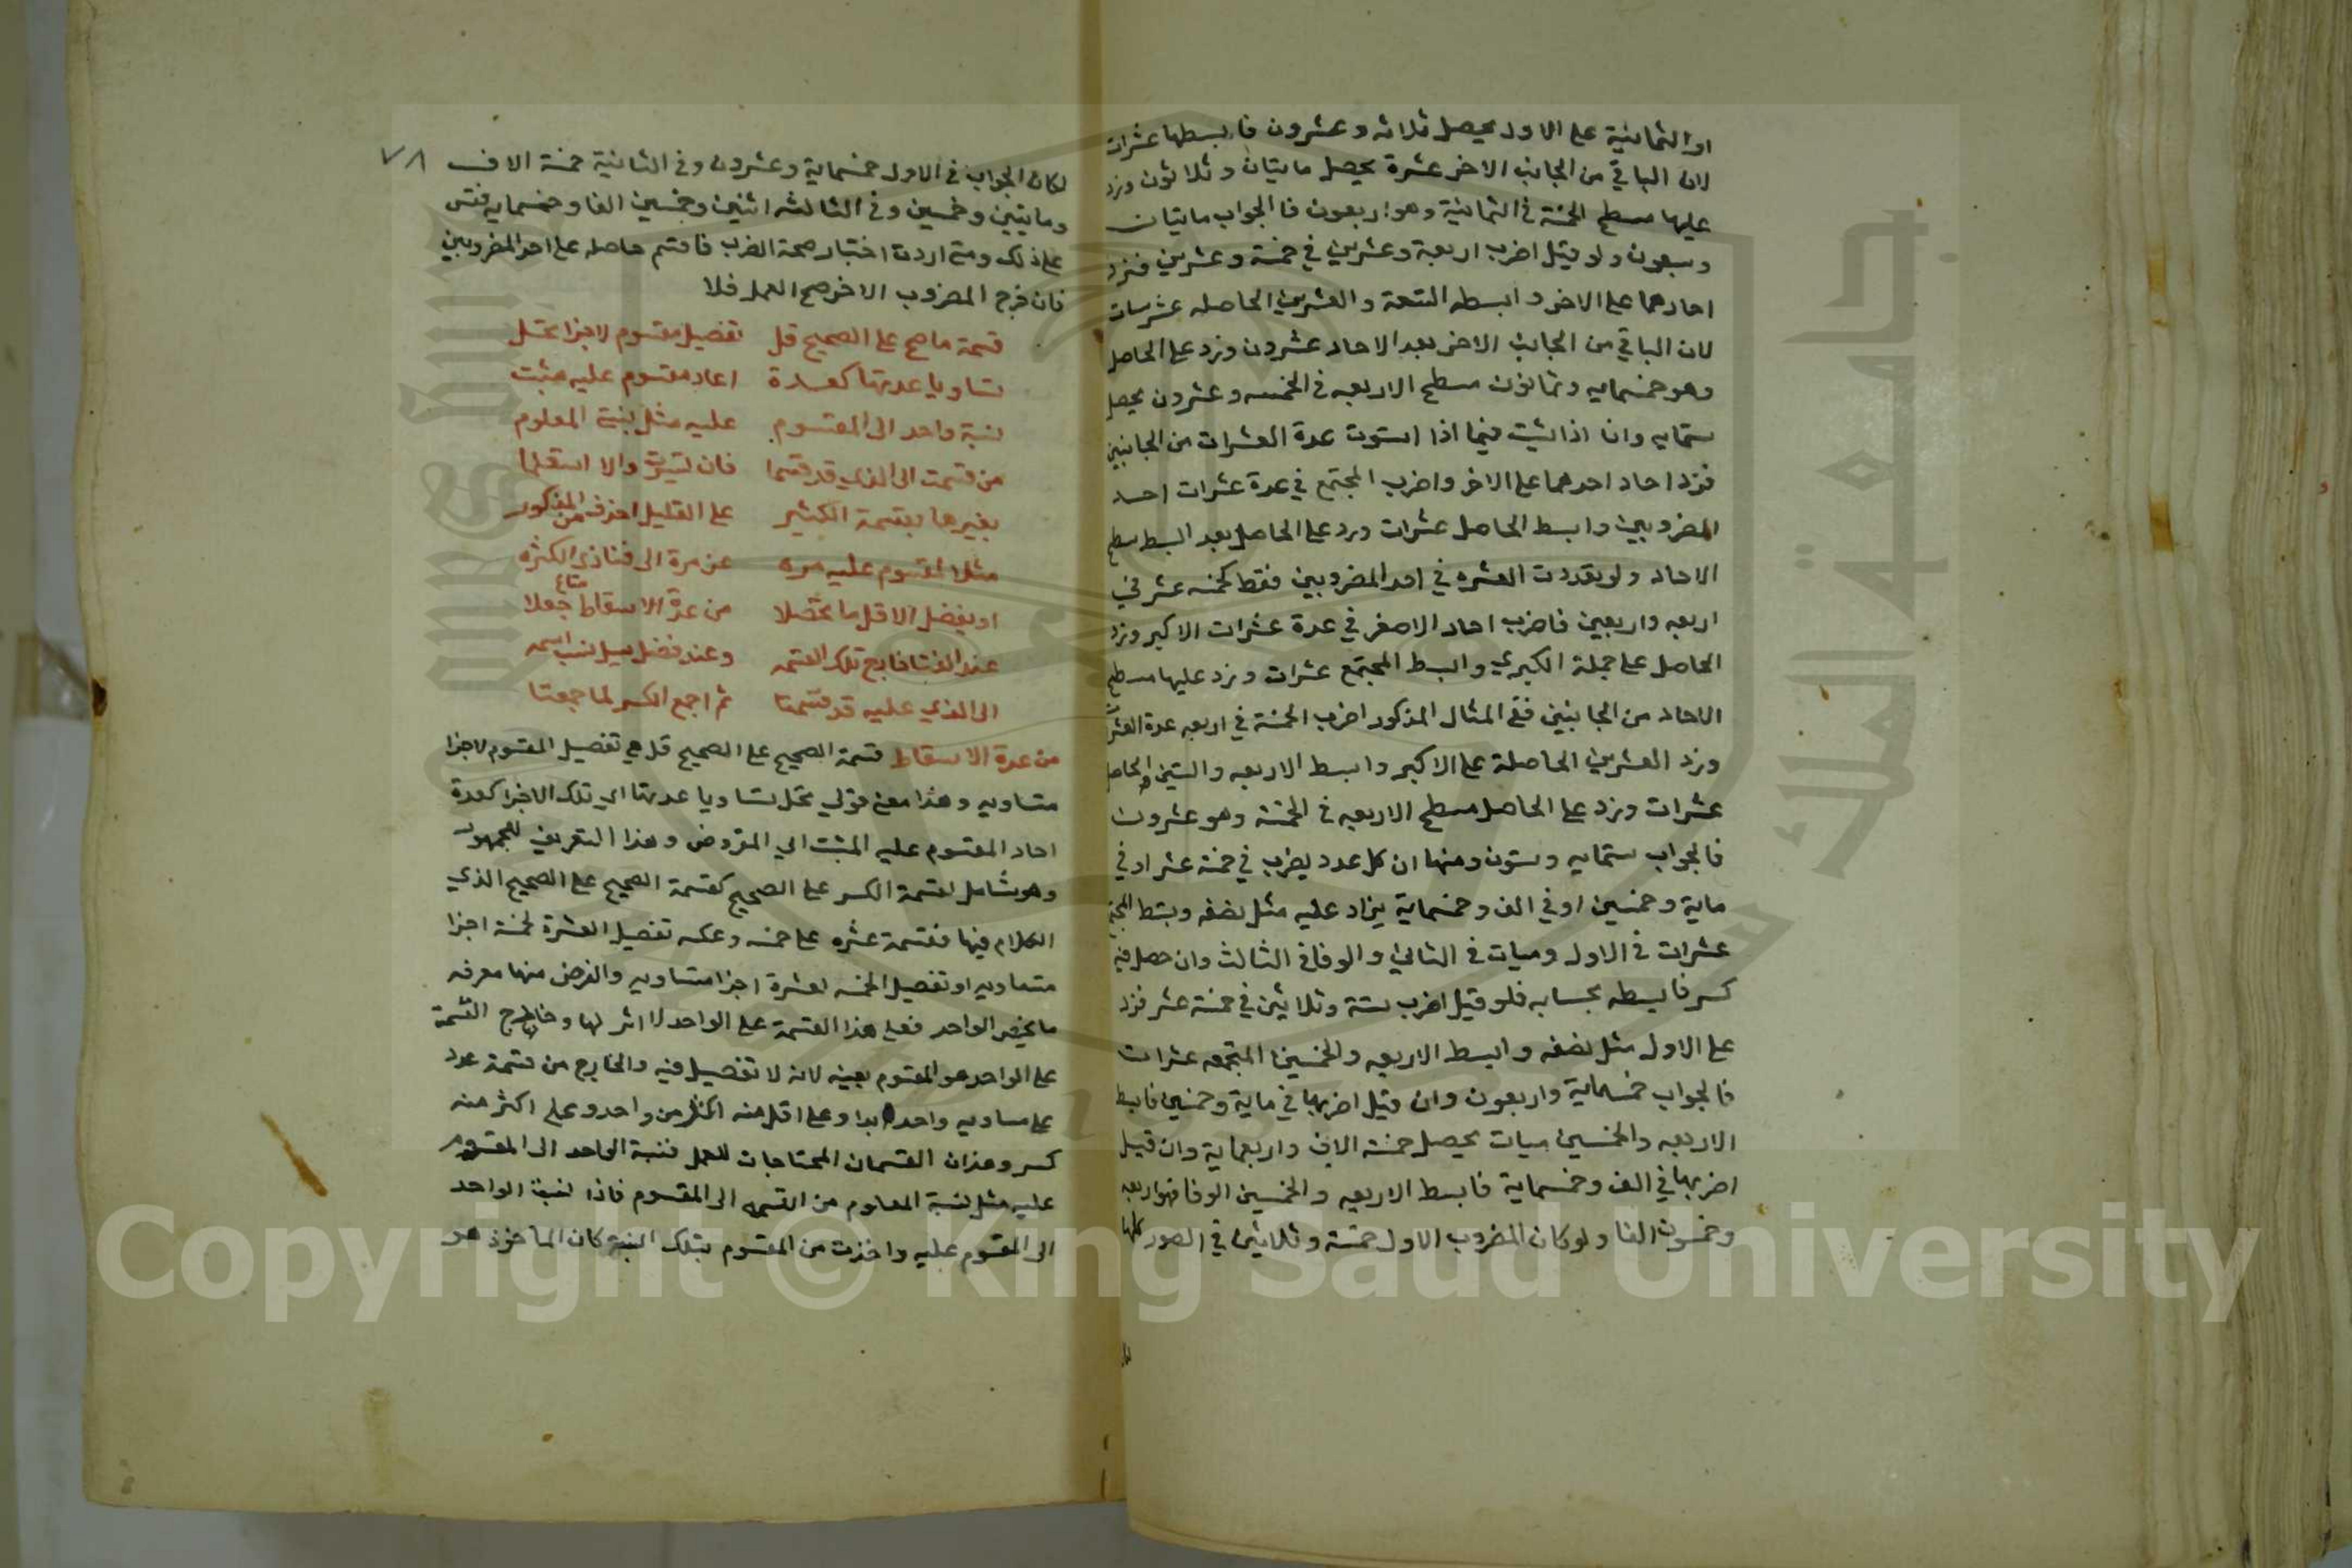 او الثمانية على الاول يحصل ثلاثه وعشرون فابسطها عشرات
لان الباقي من الجانب الاخر عشرة يحصل مايتان وثلاثون وزد
عليها مسطح الخمسة في الثمانية وهو اربعون فالجواب مايتان
وسبعون ولو قيل اضرب اربعة وعشرين في خمسة وعشرين فزد
احادهما على الاخر وابسط التسعة والعشرين الحاصله عشرينات
لان الباقي من الجانب الاخر بعد الاحاد عشرون وزد على الحاصل
وهو خمسمايه وثمانون مسطح الاربعه في الخمسه وعشرون يحصل
ستمايه وان اذا شيت فيما اذا استوت عدة العشرات من الجانبين
فزد احاد احدهما على الاخر واضرب المجتمع في عدة عشرات احد
المضروبين وابسط الحاصل عشرات وزد على الحاصل بعد البسط مسطح
الاحاد ولو تعددت العشره في احد المضروبين فقط كخمسه عشر في
اربعه واربعين فاضرب احاد الاصغر في عدة عشرات الاكبر وزد
الحاصل على جملة الكبرى وابسط المجتمع عشرات وزد عليها مسطح
الاحاد من الجانبين ففي المثال المذكور اضرب الخمسة في اربعه عدة العشرات
وزد العشرين الحاصلة على الاكبر وابسط الاربعه والستين الحاصل
عشرات وزد على الحاصل مسطح الاربعه في الخمسة وهو عشرون
فالجواب ستمايه وستون ومنها ان كل عدد يضرب في خمسة عشر او في
ماية وخمسين او في الف وخمسماية يزاد عليه مثل نصفه ويبسط المجتمع
عشرات في الاول وميات في الثاني والوفا في الثالث وان حصل فيه
كسر فابسطه بحسابه فلو قيل اضرب ستة وثلاثين في خمسة عشر فزد
على الاول مثل نصفه وابسط الاربعه والخمسين المجتمعه عشرات
فالجواب خمسماية واربعون وان قيل اضربها في ماية وخمسين فابسط
الاربعه والخمسين ميات يحصل خمسة الاف واربعماية وان قيل
اضربها في الف وخمسماية فابسط الاربعه والخمسين الوفا فهو اربعه
وخمسون الفا ولو كان المضروب الاول خمسة وثلاثين في الصور كلها
٧٨
لكان الجواب في الاول خمسماية وعشرون وفي الثانية خمسة الاف
ومايتين وخمسين وفي الثالثه اثنين وخمسين الفا وخمسمايه فقس
على ذلك ومتى اردت اختبار صحة الضرب فاقسم حاصله على احد المضروبين
فان خرج المضروب الاخر صح العمل فلا
قسمة ما صح على الصحيح قل تفصيل مقسوم لاجزا تحتمل
تساويا عدتها كعدة احاد مقسوم عليه مثبت
نسبة واحد الى المقسوم عليه مثل نسبة المعلوم
من قسمت الى الذي قد قسما فان تيسرت والا استعلما
بغيرها بقسمة الكثير على القليل احذف من المذكور
مثل المقسوم عليه مره عن مرة الى فنا ذي الكثره
او يفضل الاقل ما تحصلا من عدة الاسقاط جعلا
عند الفنا خارج تلك القسمه وعند فضل سيل نسب اسمه
الى الذي عليه قد قسمتا ثم اجمع الكسر لما جمعتا
من عدة الاسقاط قسمة الصحيح على الصحيح قل هي تفصيل المقسوم لاجزا
متساويه وهذا معنى قولي تحتمل تساويا عدتها اي تلك الاجزا كعدة
احاد المقسوم عليه المثبت اي المفروض وهذا التعريف للجمهور
وهو شامل لقسمة الكسر على الصحيح كقسمة الصحيح على الصحيح الذي
الكلام فيها فقسمة عشره على خمسه وعكسه تفصيل العشرة لخمسة اجزا
متساويه او تفصيل الخمسه لعشرة اجزا متساويه والغرض منها معرفه
ما يخص الواحد فعلى هذا القسمة على الواحد لا اثر لها وخارج القسمة
على الواحد هو المقسوم بعينه لانه لا تفصيل فيه والخارج من قسمة عدد
على مساويه واحد ابدا وعلى اقل منه اكثر من واحد وعلى اكثر منه
كسر وهذان القسمان المحتاجان للعمل فنسبة الواحد الى المقسوم
عليه مثل نسبة المعلوم من القسمه الى المقسوم فاذا نسبت الواحد
الى المقسوم عليه واخذت من المقسوم بتلك النسبة كان الماخوذ هو
Copyright © King Saud University